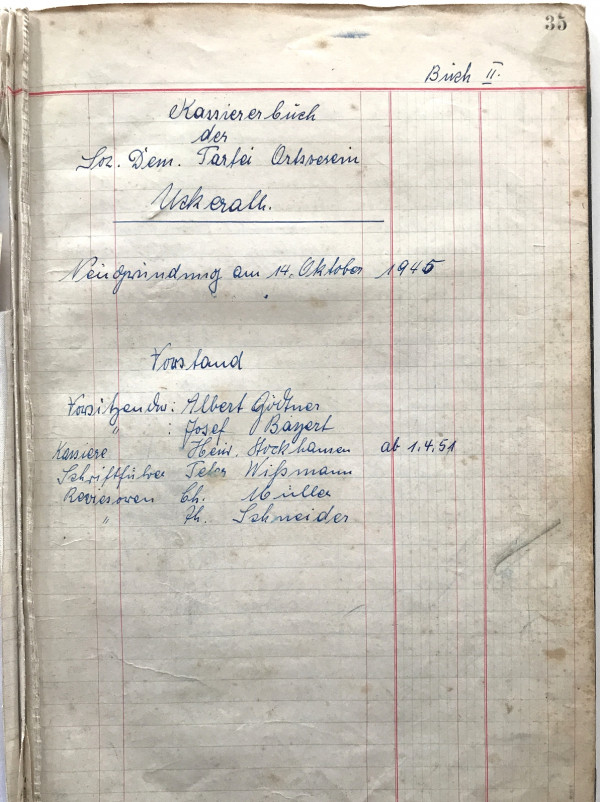 35
Buch II.
Kassiererbuch
der
Soz. Dem. Partei Ortsverein
Uckerath.
Neugründung am 14. Oktober 1945
Vorstand
Vorsitzender: Albert
" : Josef
Kassierer Heinr. Stockhausen ab 1.4.51
Schriftführer Peter Wißmann
Revisoren Ch. Müller
" Th. Schneider